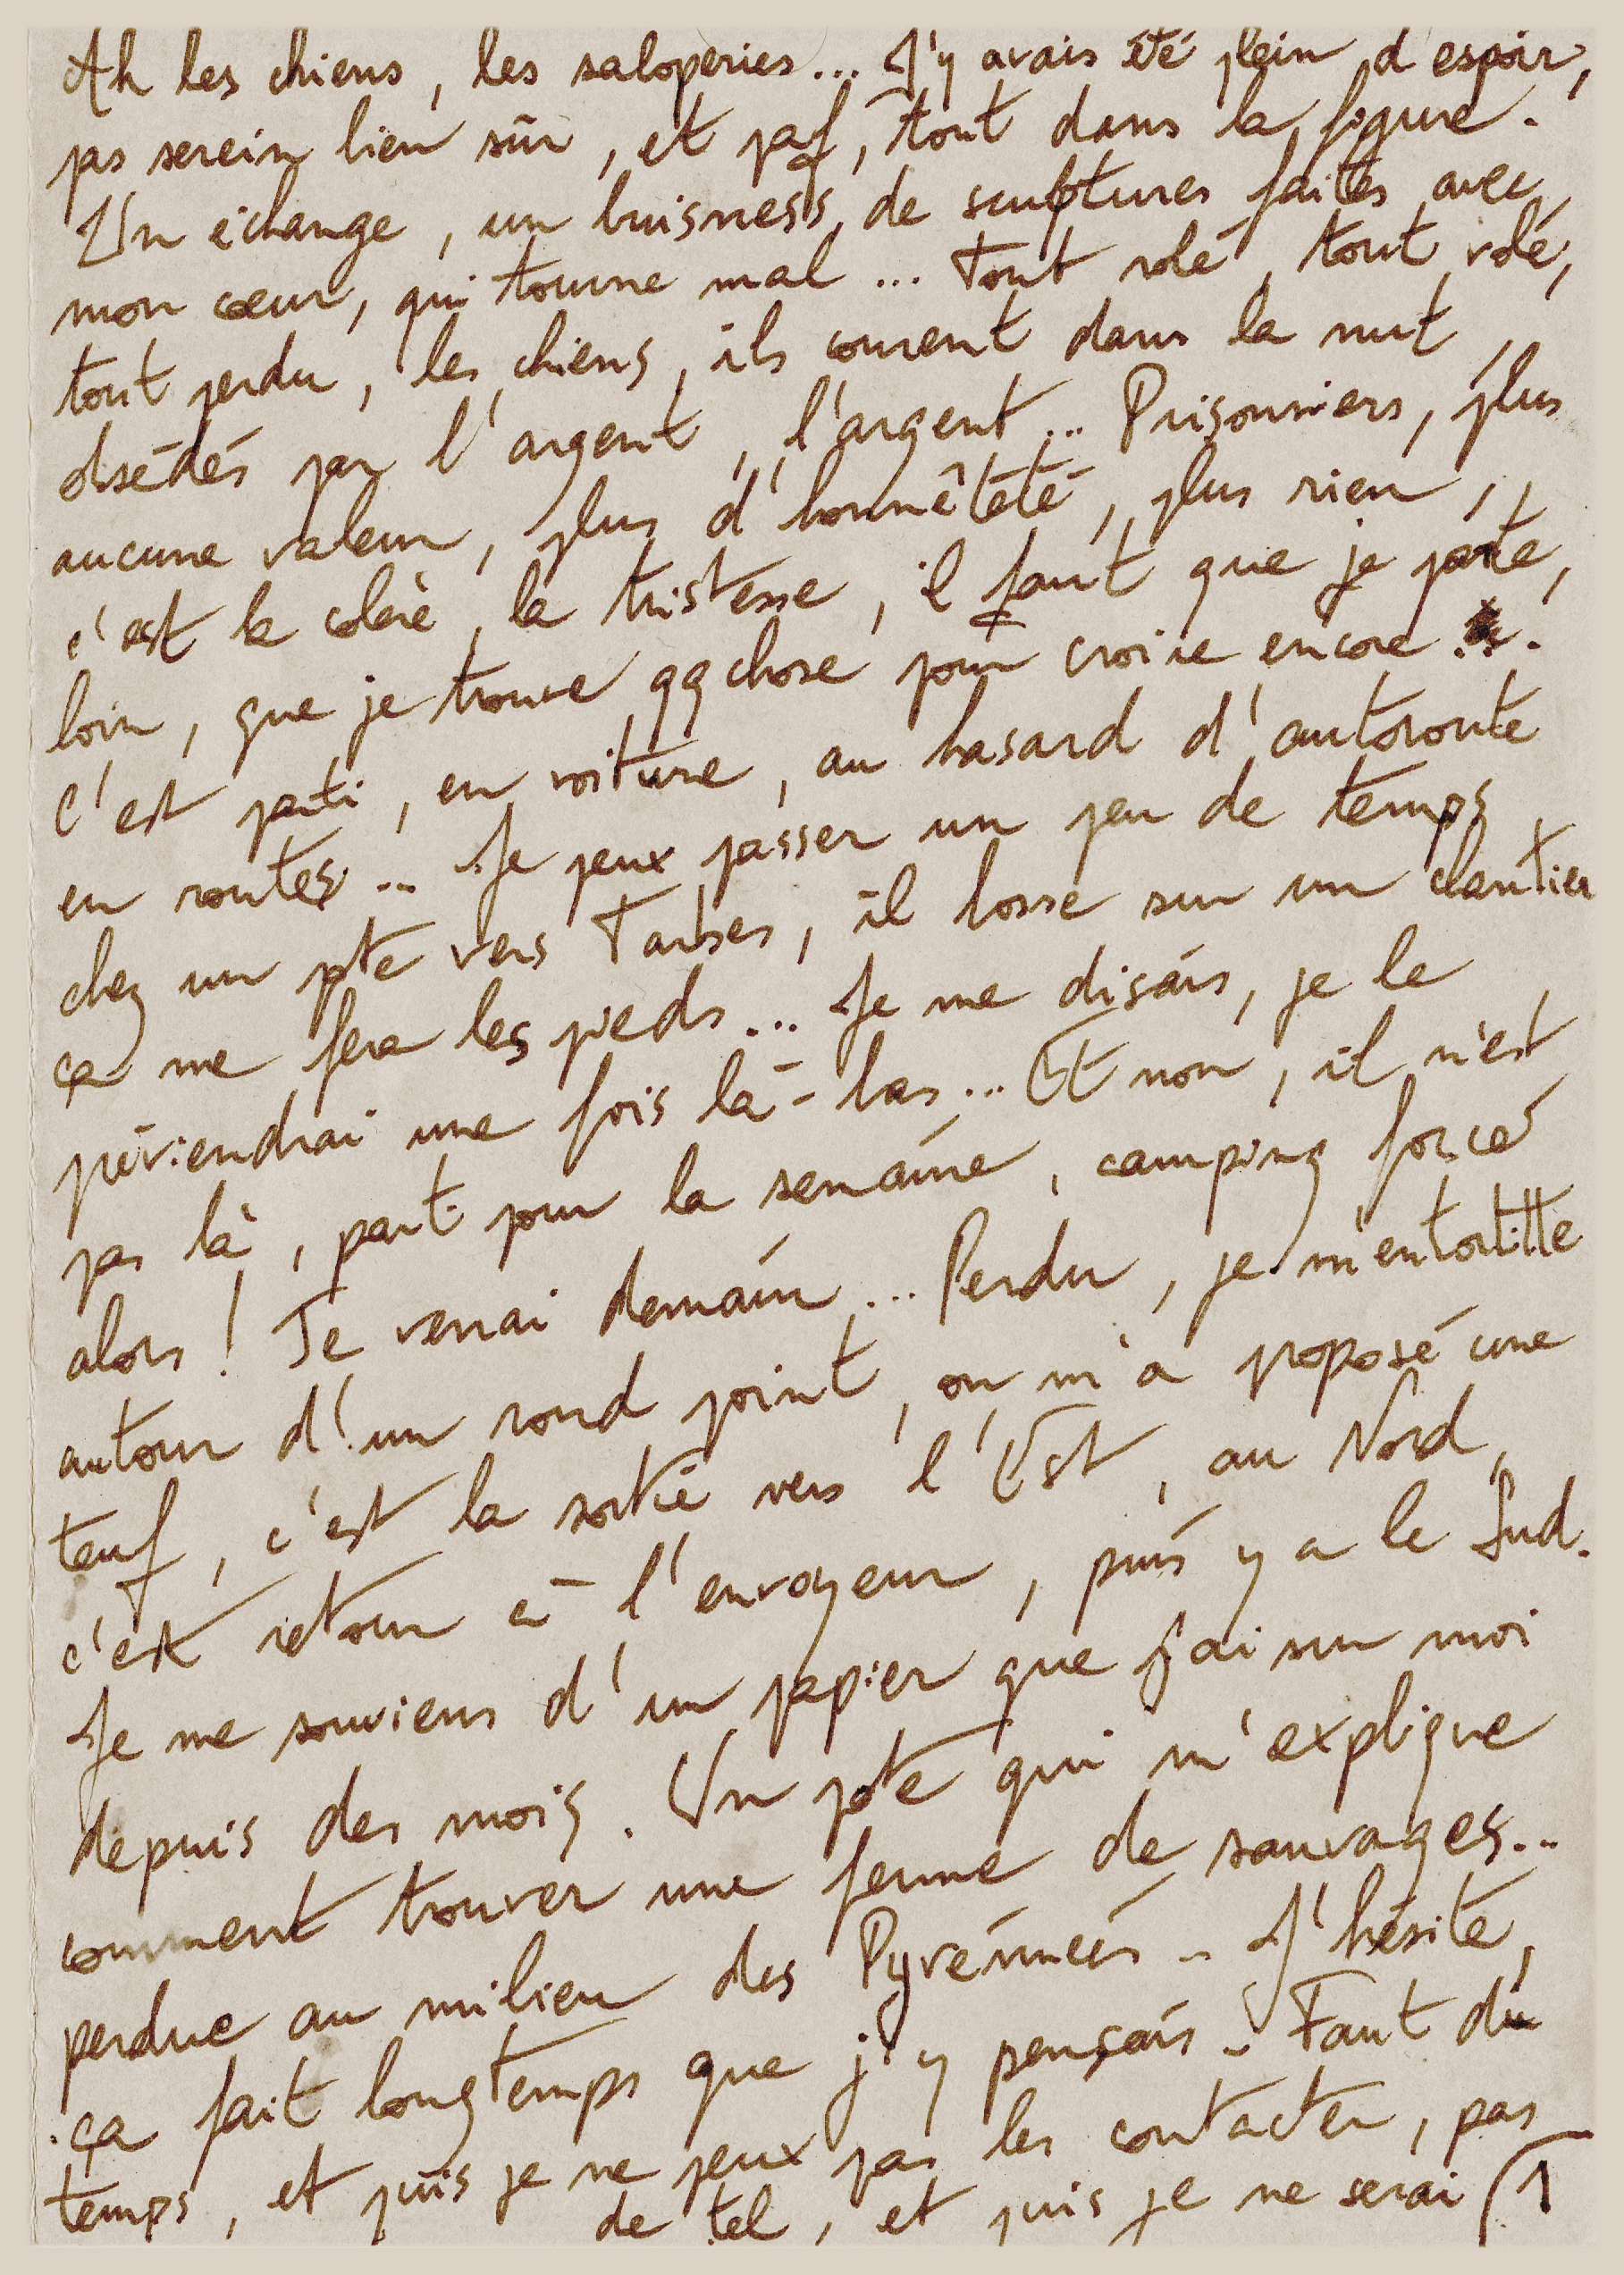 Ah les chiens, les saloperies... J'y avais été plein d'espoir,
pas serein bien sûr, et paf, tout dans la figure.
Un échange, un buisness de sculptures faites avec
mon cœur, qui tourne mal... Tout volé, tout volé,
tout perdu, les chiens, ils courent dans la nuit,
obsédés par l'argent, l'argent... Prisonniers, plus
aucune valeur, plus d'honnêteté, plus rien,
c'est la colère, la tristesse, il faut que je parte,
loin, que je trouve qqchose pour croire encore...
C'est parti, en voiture, au hasard d'autoroute
en routes... Je peux passer un peu de temps
chez un pte vers Tarbes, il bosse sur un chantier
ça me fera les pieds... Je me disais, je le
préviendrai une fois là-bas... Et non, il n'est
pas là, parti pour la semaine, camping forcé
alors! Je verrai demain... Perdu, je m'entortille
autour d'un rond point, on m'a proposé une
teuf, c'est la sortie vers l'Est, au Nord,
c'est retour à l'envoyeur, puis y a le Sud.
Je me souviens d'un papier que j'ai sur moi
depuis des mois. Un pote qui m'explique
comment trouver une ferme de sauvages...
perdue au milieu des Pyrénnées... J'hésite,
ça fait longtemps que j'y pensais... Faut du
temps, et puis je ne peux pas les contacter, pas
de tel, et puis je ne serai 1